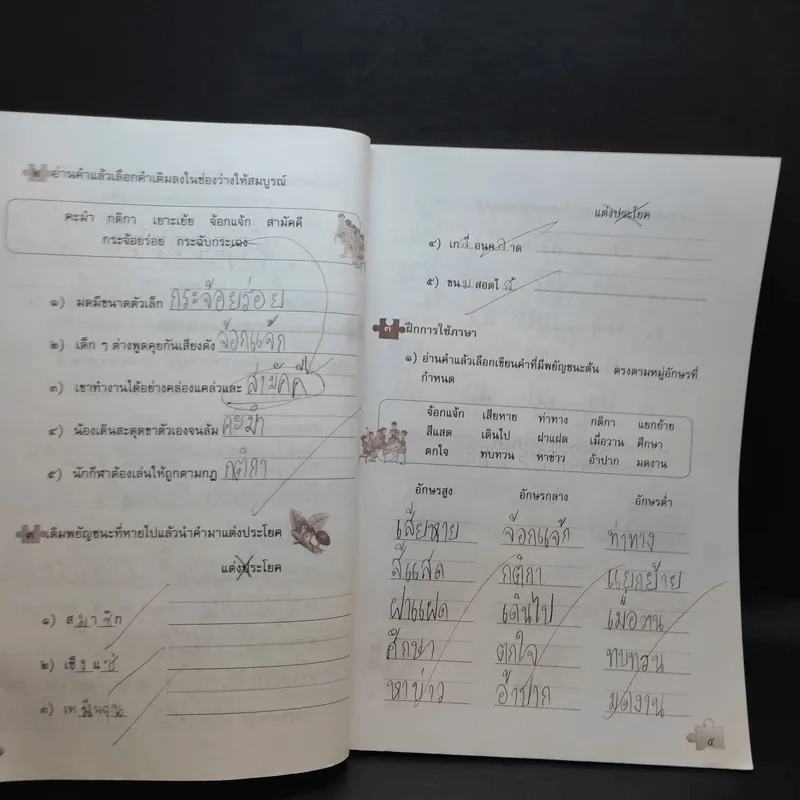 ๒ อ่านคำแล้วเลือกคำเติมลงในช่องว่างให้สมบูรณ์
คะมำ กติกา เยาะเย้ย จ้อกแจ้ก สามัคคี
กระจ้อยร่อย กระฉับกระเฉง
๑) มดมีขนาดตัวเล็ก กระจ้อยร่อย
๒) เด็ก ๆ ต่างพูดคุยกันเสียงดัง จ้อกแจ้ก
๓) เขาทำงานได้อย่างคล่องแคล่วและ สามัคคี
๔) น้องเดินสะดุดขาตัวเองจนล้ม คะมำ
๕) นักกีฬาต้องเล่นให้ถูกตามกฎ กติกา
๓ เติมพยัญชนะที่หายไปแล้วนำคำมาแต่งประโยค
แต่งประโยค
๑) สมาชิก
๒)
๓)
แต่งประโยค
๔) เกลื่อนกลาด
๕) ขนมสอดไส้
๓ ฝึกการใช้ภาษา
๑) อ่านคำแล้วเลือกเขียนคำที่มีพยัญชนะต้น ตรงตามหมู่อักษรที่
กำหนด
จ้อกแจ้ก เสียหาย ท่าทาง กติกา แยกย้าย
สีแสด เดินไป ฝาแฝด เมื่อวาน ศึกษา
ตกใจ ทบทวน หาข่าว อ้าปาก มดงาน
อักษรสูง อักษรกลาง อักษรต่ำ
เสียหาย จ้อกแจ้ก ท่าทาง
สีแสด กติกา แยกย้าย
ฝาแฝด เดินไป เมื่อวาน
ศึกษา ตกใจ ทบทวน
หาข่าว อ้าปาก มดงาน